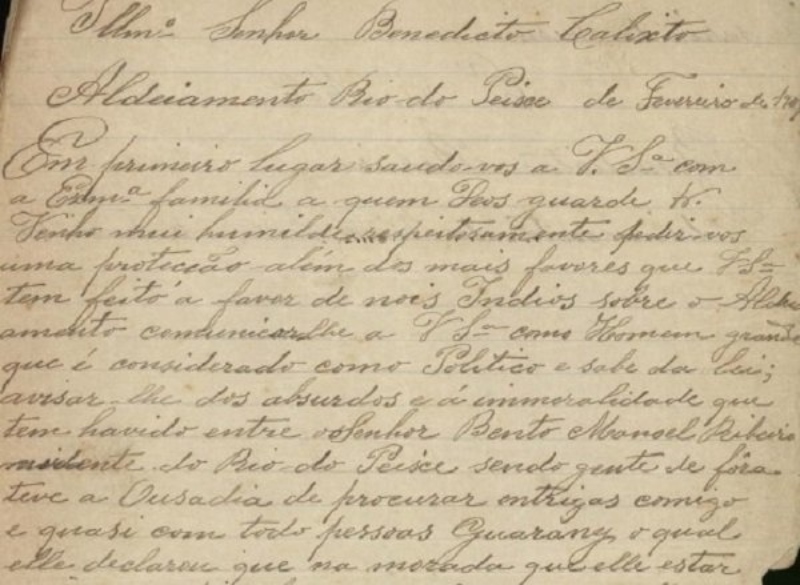 Illmº Senhor Benedicto Calixto
Aldeiamento Rio do Peixe de Fevereiro de
Em primeiro lugar saudo-vos a V. Sª com
a Exmª familia a quem Deos guarde &.
Venho mui humilde respeitosamente pedir-vos
uma protecção além dos mais favores que V Sª
tem feito a favor de nois Indios sobre o Aldei
amento comunicar-lhe a V Sª como Homem grande
que é considerado como Politico e sabe da lei;
avisar-lhe dos absurdos e á immoralidade que
tem havido entre o Senhor Bento Manoel Ribeiro
residente do Rio do Peixe sendo gente de fóra
teve a Ousadia de procurar entrigas comigo
e quasi com todo pessoas Guarany o qual
elle declarou que na morada que elle estar